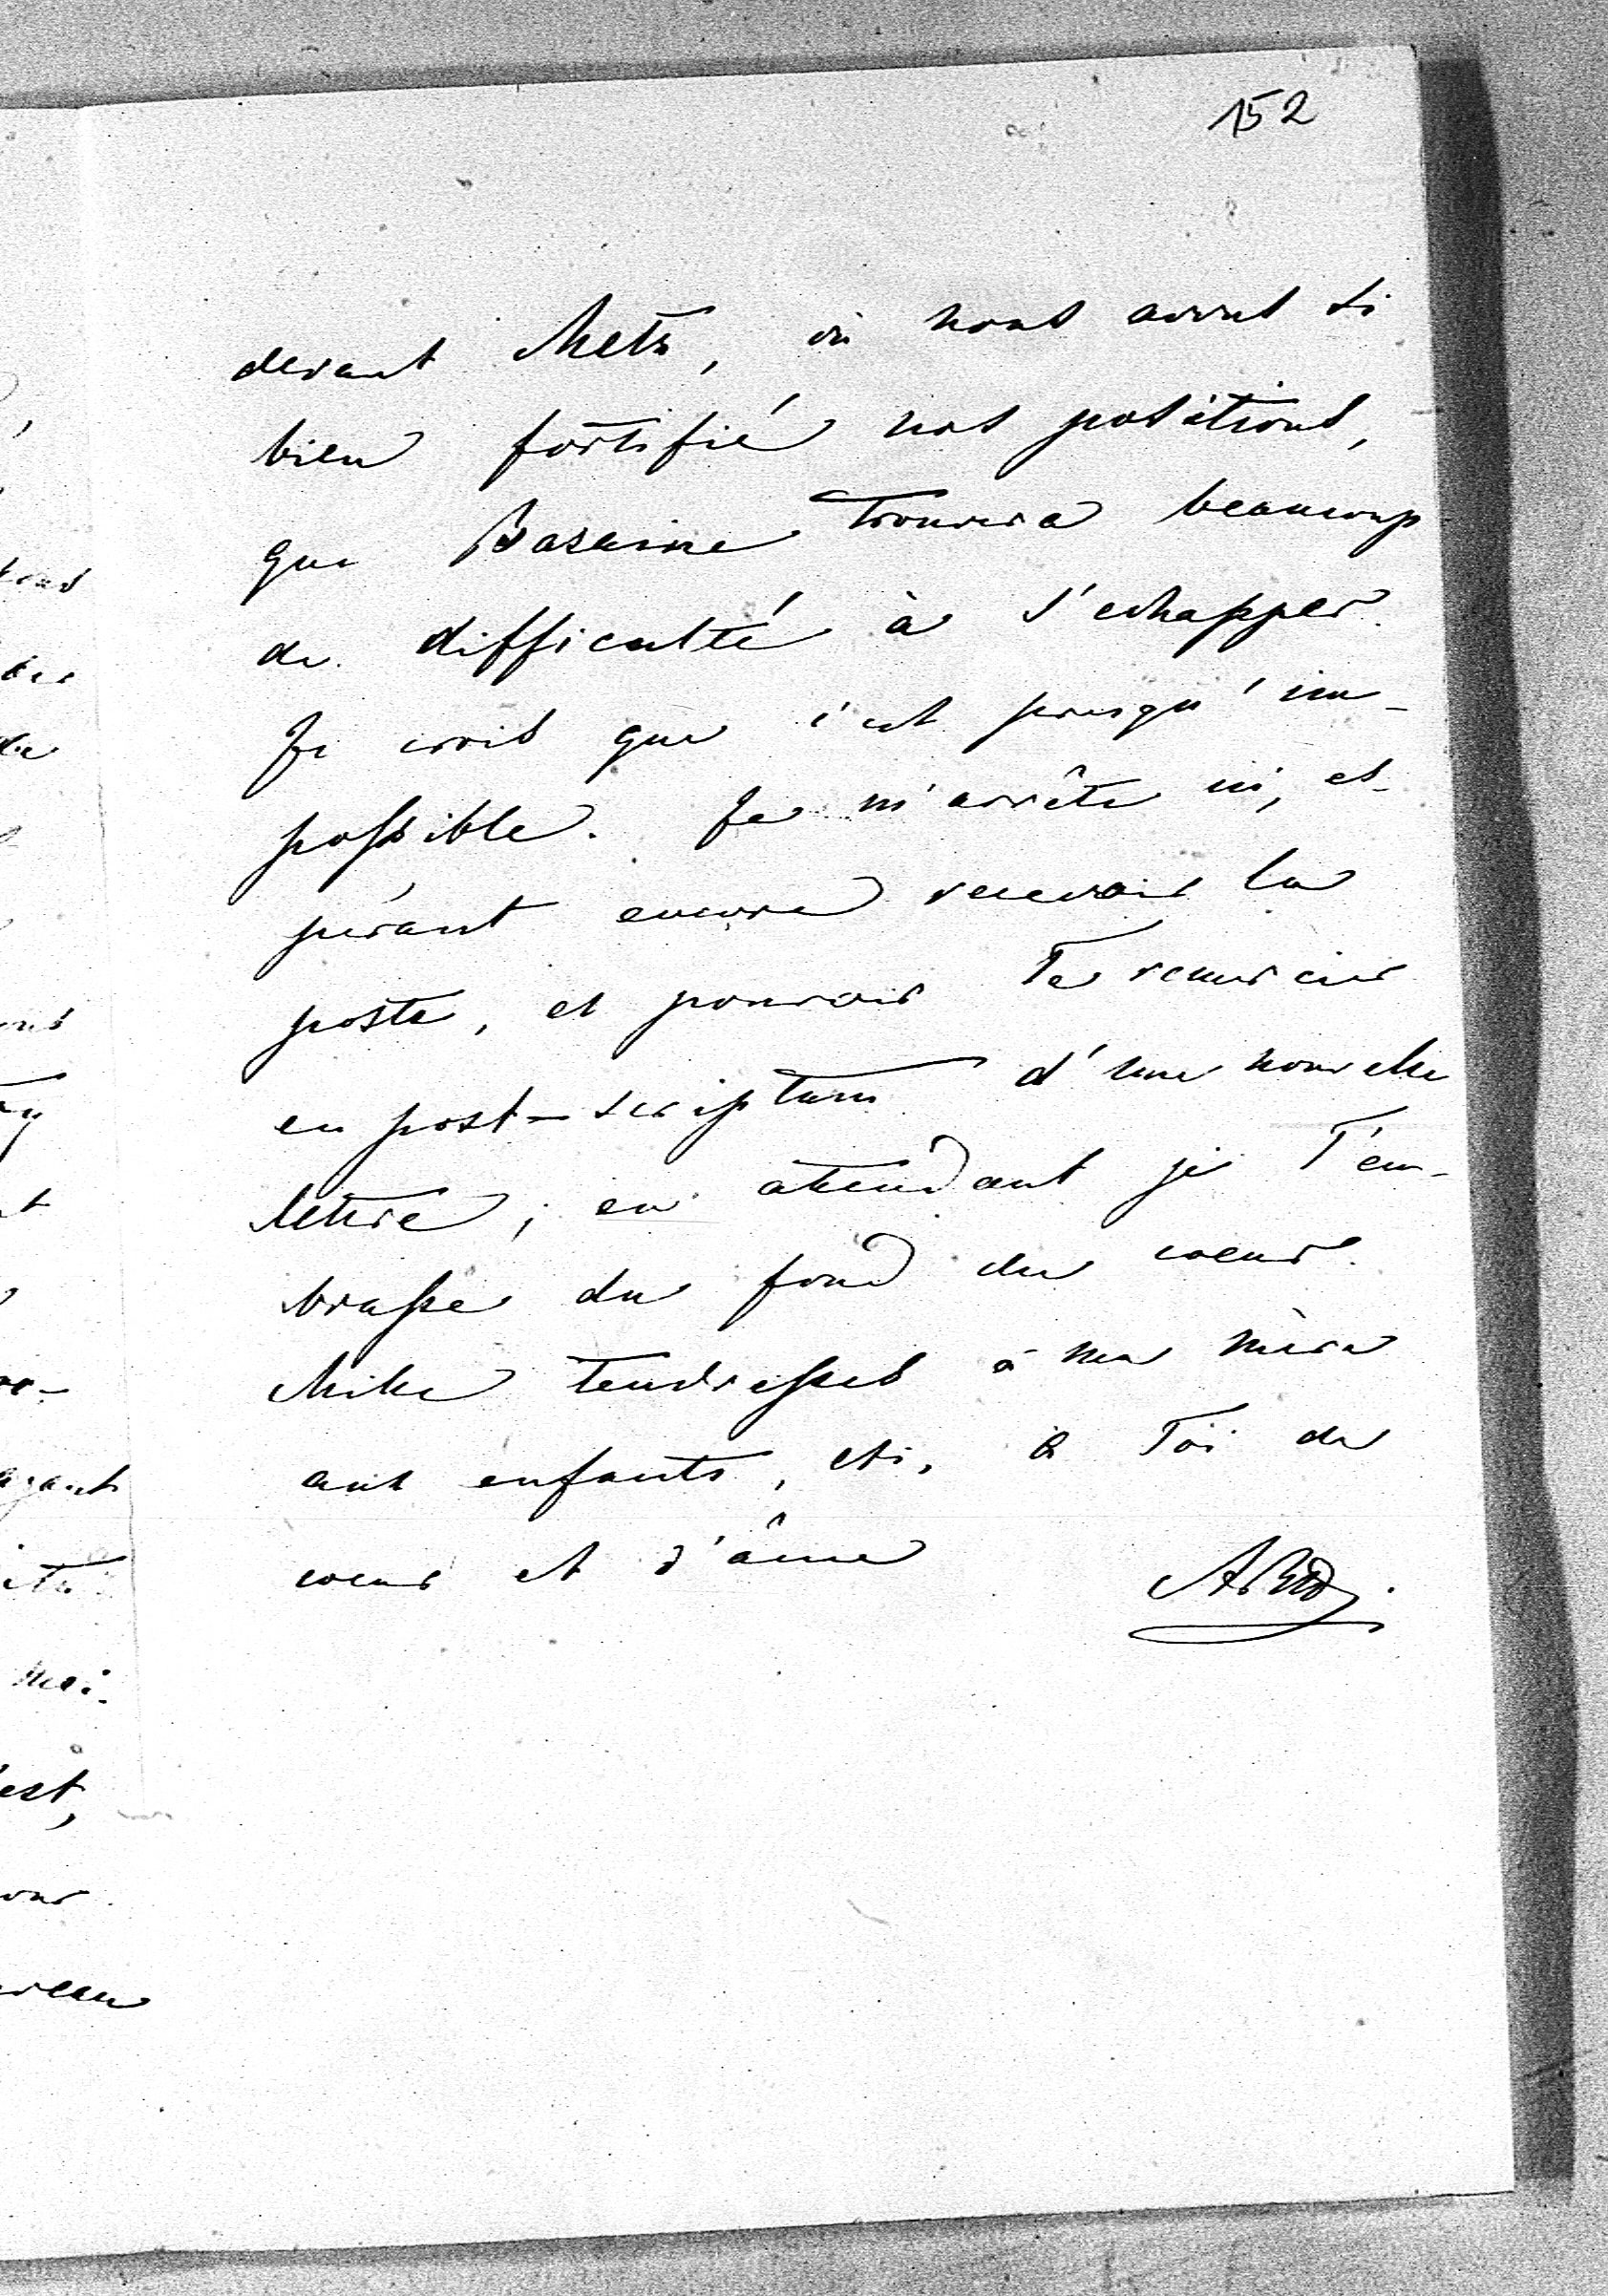 152
devant Metz, où nous avons si
bien fortifié nos positions,
que Basaine trouvera beaucoup
de difficulté à s'echapper.
Je crois que c'est presqu'im-
possible. Je m'arrête ici, es-
pérant encore recevoir la
poste, et pouvoir Te remercier
en post-scriptum d'une nouvelle
lettre; en attendant je T'em-
brasse du fond du coeur.
Mille tendresses à ma mère
aux enfants, etc. à Toi de
coeur et d'âme